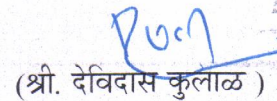 (श्री. देविदास कुलाळ )